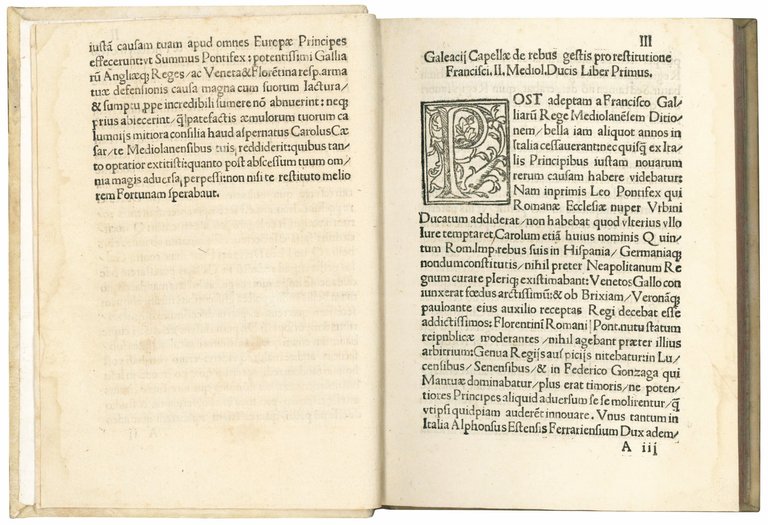 iustã causam tuam apud omnes Europæ Principes
effecerunt vt Summus Pontifex: potentissimi Gallia
rũ Angliæq; Reges/ac Veneta & Florẽtina resp.arma
tuæ defensionis causa magna cum suorum Iactura/
& sumptu, ppe incredibili sumere nõ abnuerint: neq;
prius abiecerint/ q̃ patefactis æmulorum tuorum ca
lumnijs mitiora consilia haud aspernatus Carolus Cæ
sar/te Mediolanensibus tuis, reddiderit: quibus tan/
to optatior extitisti: quanto post abscessum tuum om/
nia magis aduersa, perpessi: non nisi te restituto melio
rem Fortunam sperabant.
III
Galeacij Capellæ de rebus gestis pro restitutione
Francisci. II. Mediol. Ducis Liber Primus.
POST adeptam a Francisco Gal/
liarũ Rege Mediolanẽsem Ditio
nem/ bella iam aliquot annos in
Italia cessauerant: nec quisq̃ ex Ita
lis Principibus iustam nouarum
rerum causam habere videbatur:
Nam inprimis Leo Pontifex qui
Romanæ Ecclesiæ nuper Vrbini
Ducatum addiderat/non habebat quod vlterius vllo
Iure temptaret, Carolum etiã huius nominis Quin/
tum Rom.Imp.rebus suis in Hispania/ Germaniaq;
nondum constitutis/nihil preter Neapolitanum Re
gnum curare pleriq; existimabant: Venetos Gallo con
iunxerat fœdus arctissimũ: & ob Brixiam/ Veronãq;
pauloante eius auxilio receptas Regi decebat esse
addictissimos: Florentini Romani Pont.nutu statum
reipublicæ moderantes /nihil agebant præter illius
arbitrium: Genua Regijs auspicijs nitebatur: in Lu/
censibus/ Senensibus/ & in Federico Gonzaga qui
Mantuæ dominabatur/ plus erat timoris/ne poten/
tiores Principes aliquid aduersum se se molirentur/ q̃
vt ipsi quidpiam auderẽt innouare. Vnus tantum in
Italia Alphonsus Estensis Ferrariensium Dux adem/
A iij